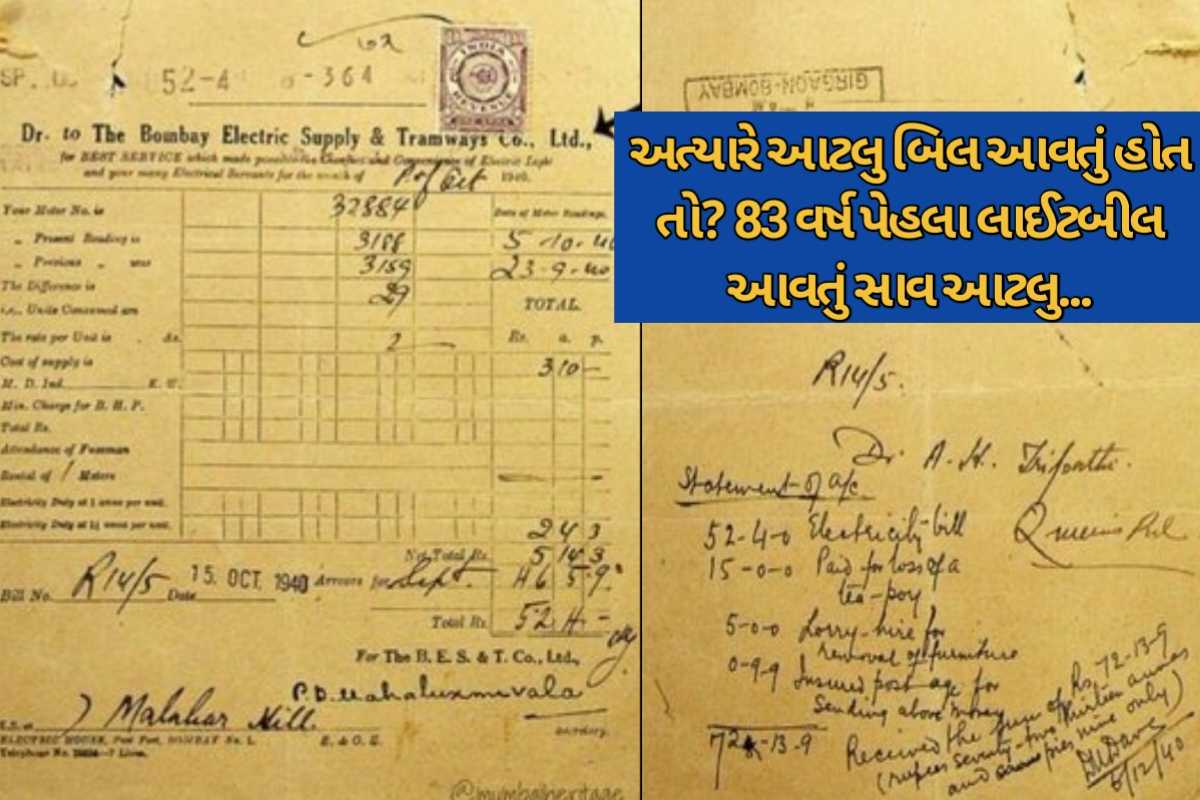 52-4 8-364
INDIA
REVENUE
Dr. to The Bombay Electric Supply & Tramways Co., Ltd.,
for BEST SERVICE which made possible the Comfort and Convenience of Electric Light
and your many Electrical Servants for the month of P. of Oct 1940.
Your Meter No. is 32884 Date of Meter Readings.
„ Present Reading is 3188 5-10-40
„ Previous „ was 3159 23-9-40
The Difference is 29
i.e., Units Consumed are TOTAL.
The rate per Unit is As. 2 Rs. a. p.
Cost of supply is 3 10 -
M. D. Ind. K. W.
Min. Charge for B. H. P.
Total Rs.
Attendance of Fuseman
Rental of 1 Meters
Electricity Duty at 1 anna per unit.
Electricity Duty at 1½ annas per unit. 2 4 3
Net Total Rs. 5 14 3
Arrears for Sept. 46 5 9
Bill No. R14/5 Date 15 OCT. 1940
Total Rs. 52 4 -
For The B. E. S. & T. Co., Ltd.,
P.D. Mahaluxmivala
Secretary.
Malabar Hill.
ELECTRIC HOUSE, Post Fort, BOMBAY No. 1. E. & O. E.
Telephone No. 7 Lines.
@mumbaiheritage
GIRGAON-BOMBAY
અત્યારે આટલુ બિલ આવતું હોત
તો? 83 વર્ષ પેહલા લાઈટબીલ
આવતું સાવ આટલુ...
R14/5.
Dr. A. H. Tripathi.
Statement of a/c
52-4-0 Electricity bill
15-0-0 Paid for loss of a
tea-poy
5-0-0 Lorry-hire for
removal of furniture
0-9-9 Insured postage for
Sending above money
72-13-9
Received the sum of Rs. 72-13-9
(rupees seventy-two thirteen annas
and pies nine only)
6/12/40